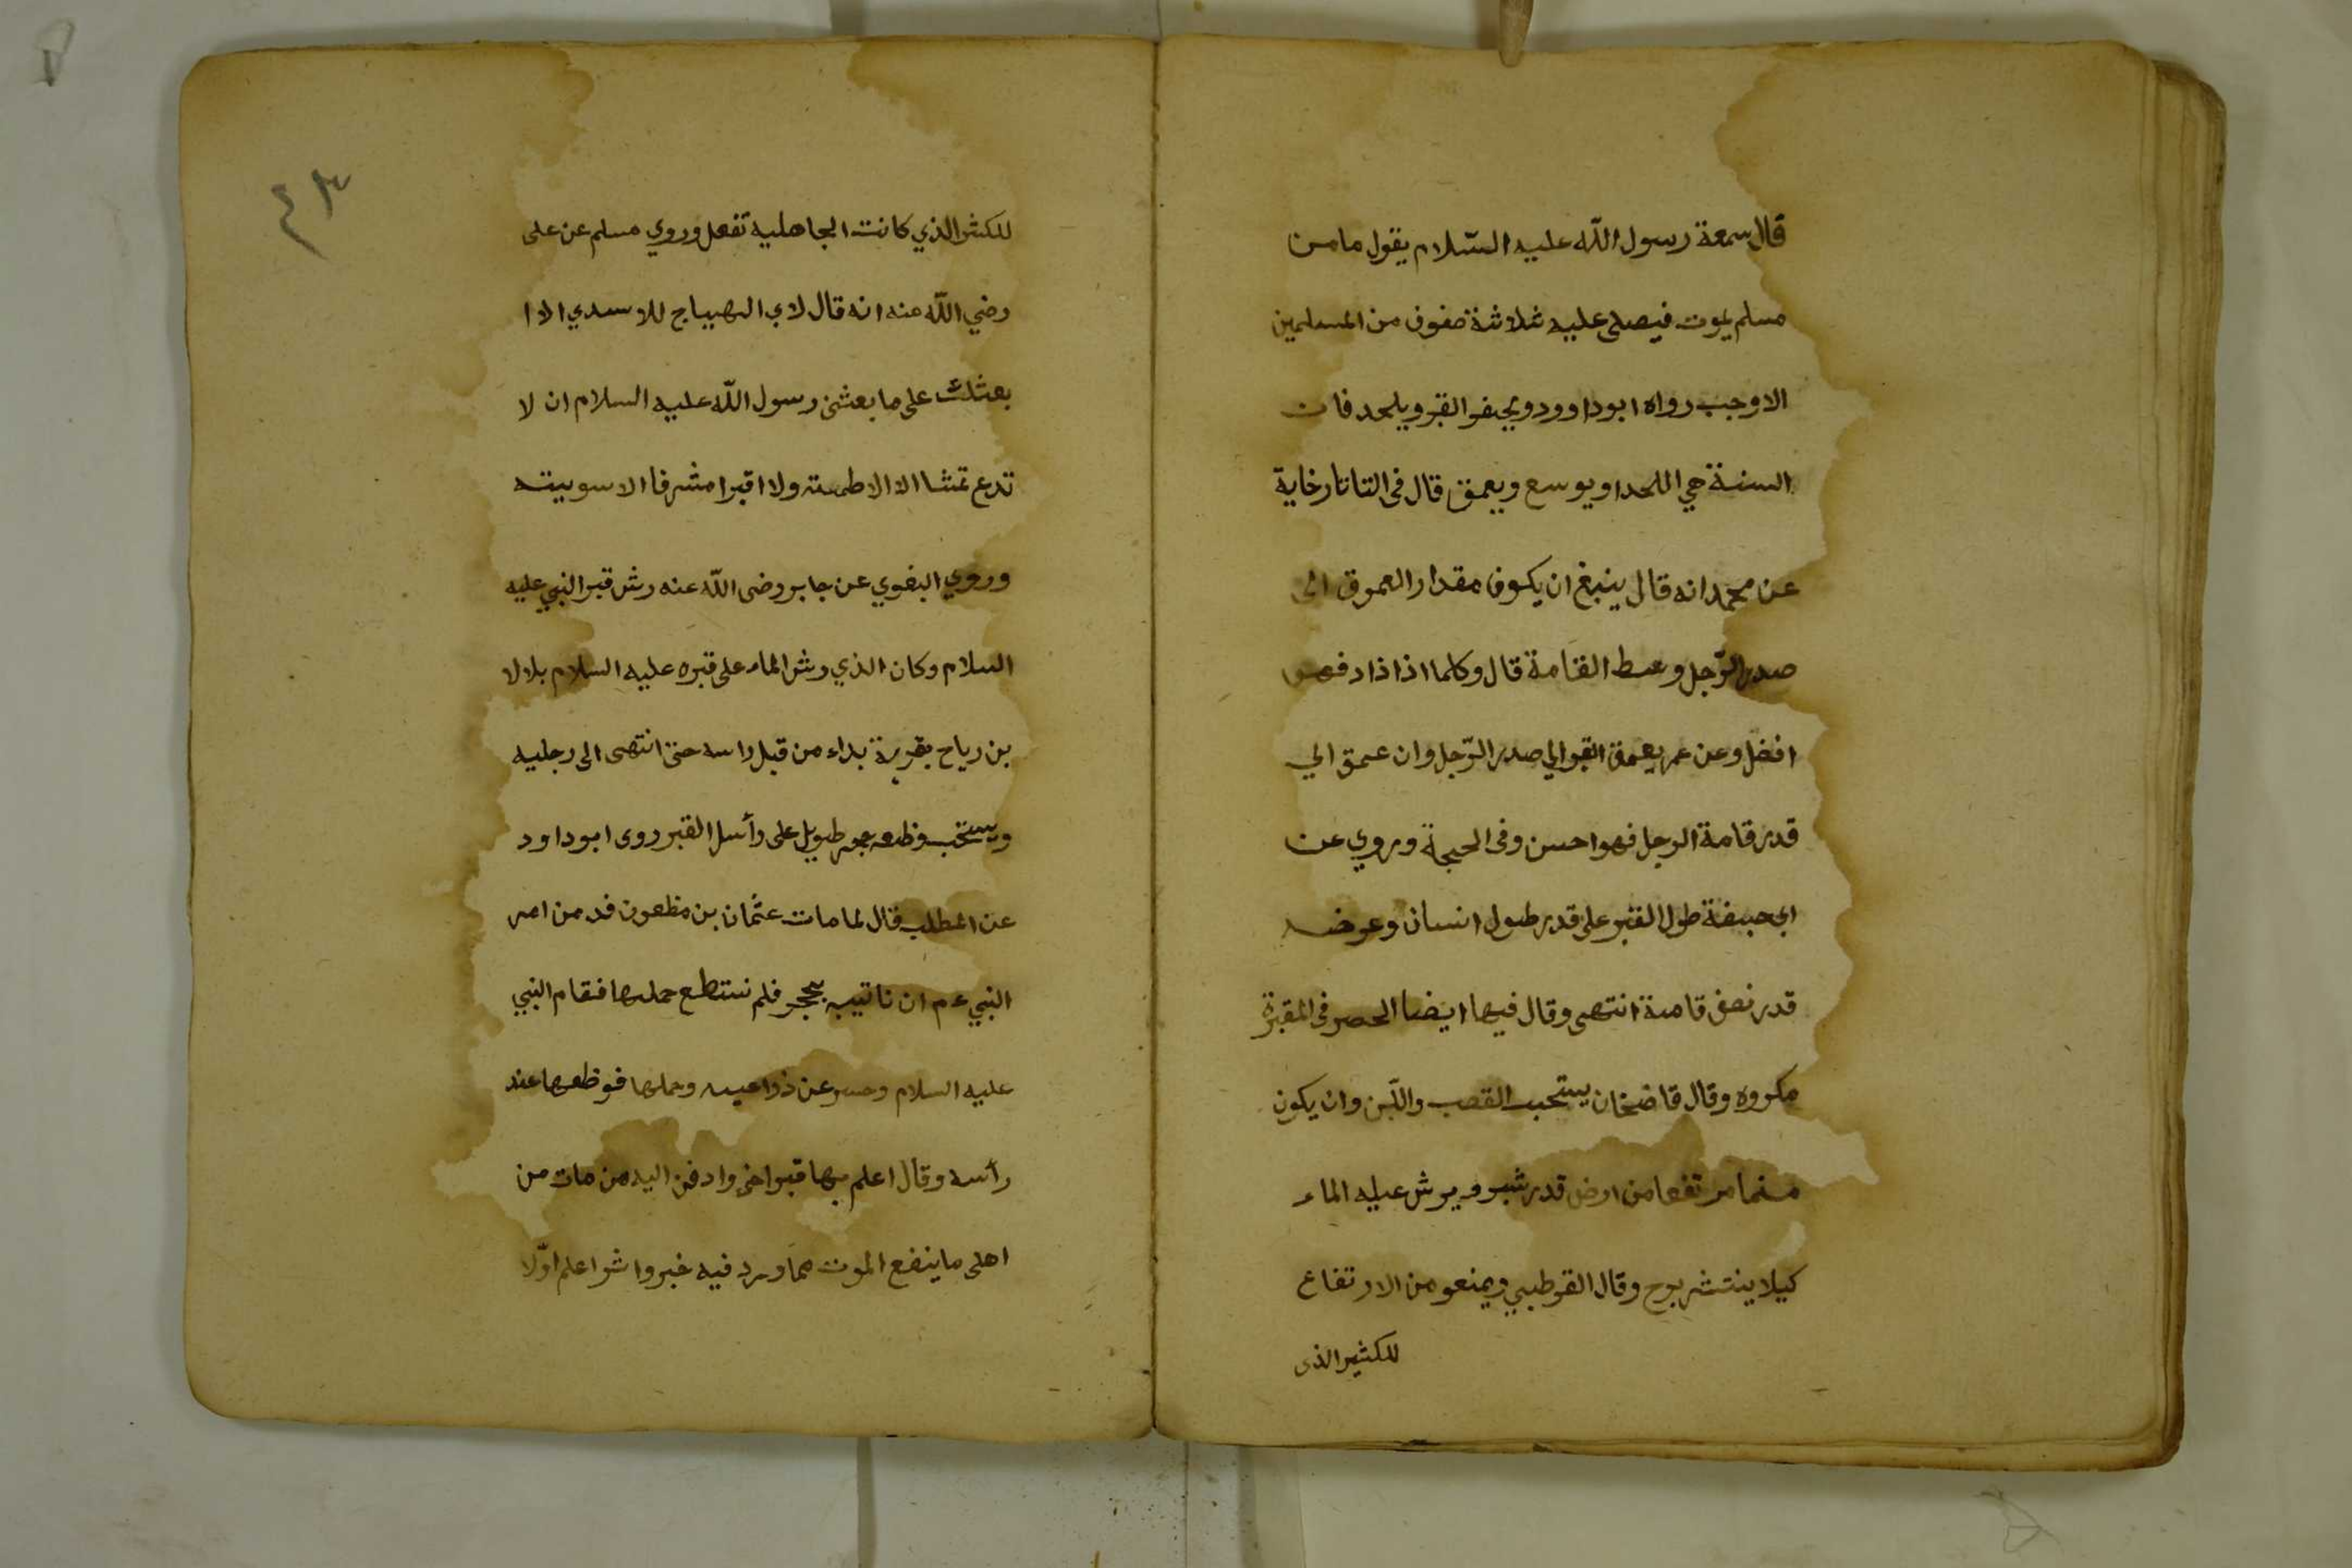 قال سمعة رسول اللّه عليه السّلام يقول ما من
مسلم يموت فيصلى عليه ثلاثة صفوف من المسلمين
الا وجب رواه ابو داوود ويحفر القبر ويلحد فان
السنة هي اللحد او يوسع ويعمق قال فى التاتارخاية
عن محمد انه قال ينبغ ان يكون مقدار العموق الى
صدر الرّجل وسط القامة قال وكلما اذا ذاد فهو
افضل وعن عمر يعمق القبر الي صدر الرّجل وان عمق الي
قدر قامة الرجل فهو احسن وفى الحجة وروي عن
ابي حنيفة طول القبر على قدر طول انسان وعرضه
قدر نصف قامة انتهى وقال فيها ايضا الحصر فى المقبرة
مكروه وقال قاضخان يستحب القصب واللّبن وان يكون
مسنما مرتفعا من ارض قدر شبر ويرش عليه الماء
كيلا ينتشر بريح وقال القرطبي ويمنعو من الارتفاع
للكثير الذى
٤٣
للكثر الذي كانت الجاهلية تفعل وروي مسلم عن على
رضي اللّه منه انه قال لابي الهيباج للاسدي الا ا
بعثك على ما بعثنى رسول اللّه عليه السلام ان لا
تدع تمثا الا الا طمسته ولا اقبرا مشرفا الا سويته
وروي البغوي عن جابر رضى اللّه عنه رش قبر النبي عليه
السلام وكان الذي رش الماء على قبره عليه السلام بلالا
بن رياح بقربة بداء من قبل راسه حتى انتهى الى رجليه
ويستحب وظعه حجر طويل على رأس القبر روى ابو داود
عن المطلب قال لما مات عثمان بن مظعون فدمن امر
النبي ءم ان ناتيه بحجر فلم نستطع حملها فقام النبي
عليه السلام وحسر عن ذراعيه وحملها فوظعها عند
رأسه وقال اعلم بها قبر اخي وادفن اليه من مات من
اهلى ما ينفع الموت مما ورد فيه خبر واثر اعلم اوّلا